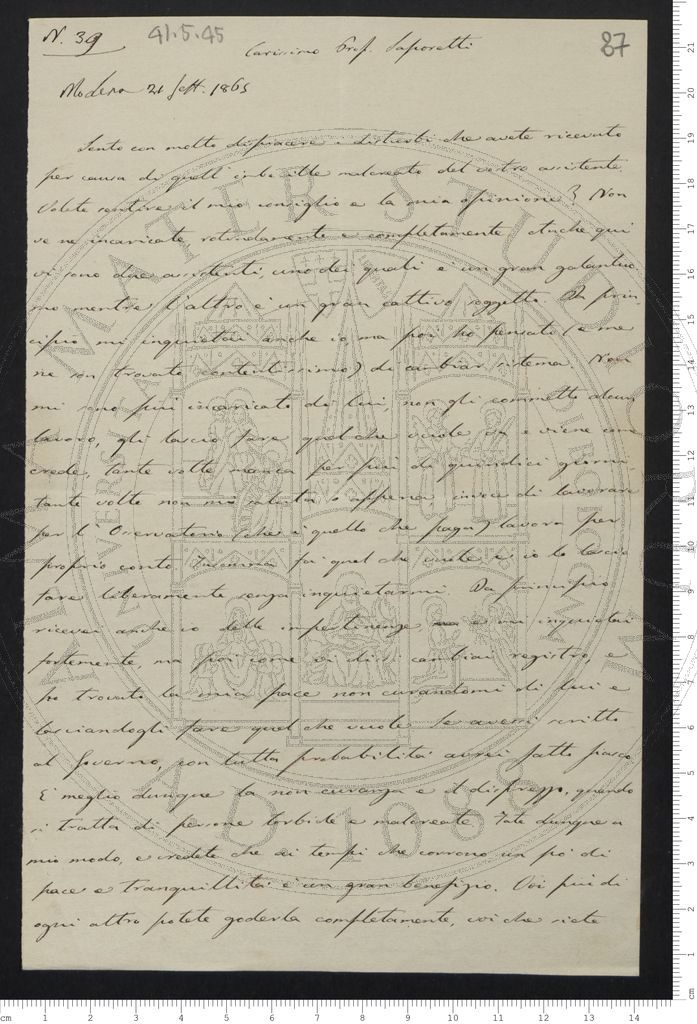 N. 39
41.5.45
87
Carissimo Prof. Saporetti
Modena 21 Sett. 1865
Sento con molto dispiacere i disturbi che avete ricevuto
per causa di quell'imbecille malcreato del vostro assistente.
Volete sentire il mio consiglio e la mia opinione? Non
ve ne incaricate rotondamente e completamente. Anche qui
vi sono due assistenti, uno dei quali è un gran galantuo-
mo mentre l'altro è un gran cattivo soggetto. In prin-
cipio mi inquietai anche io ma poi ho pensato (e me
ne son trovato contentissimo) di cambiar sistema. Non
mi sono più incaricato di lui, non gli commetto alcun
lavoro, gli lascio fare quel che vuole va e viene come
crede, tante volte manca per più di quindici giorni,
tante volte non mi saluta o appena, invece di lavorare
per l'Osservatorio (che è quello che paga) lavora per
proprio conto. Insomma fa quel che vuole e io lo lascio
fare liberamente senza inquietarmi. Da principio
ricevei anche io delle impertinenze e mi inquietai
fortemente, ma poi come vi dissi cambiai registro, e
ho trovato la mia pace non curandomi di lui e
lasciandogli fare quel che vuole. Se avessi scritto
al Governo, con tutta probabilità avrei fatto fiasco.
È meglio dunque la non curanza e il disprezzo, quando
si tratta di persone torbide e malcreate. Fate dunque a
mio modo, e credete che ai tempi che corrono un po' di
pace e tranquillità è un gran benefizio. Voi più di
ogni altro potete goderla completamente, voi che siete
ALMA MATER STUDIORUM
UNIVERSITÀ
BOLOGNA
A.D. 1088
LIBERTAS
cm 1 2 3 4 5 6 7 8 9 10 11 12 13 14
21
20
19
18
17
16
15
14
13
12
11
10
9
8
7
6
5
4
3
2
1
cm